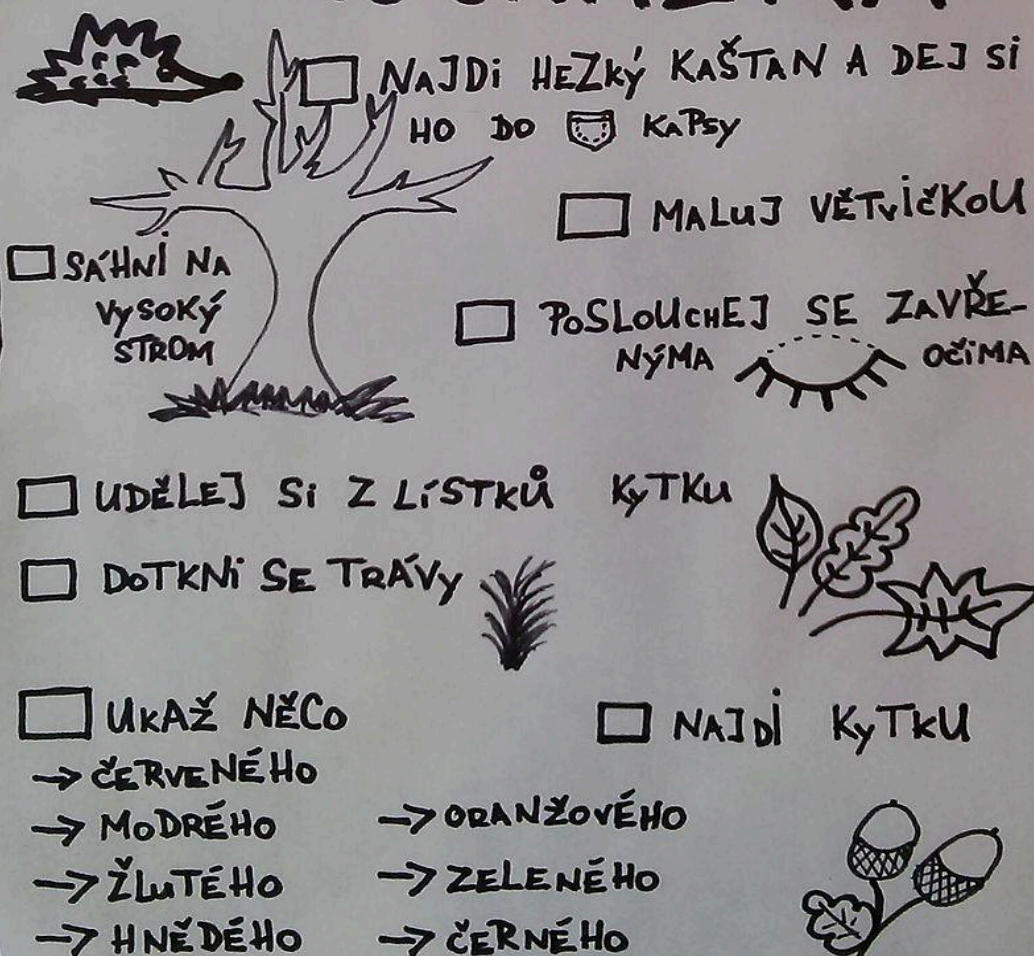 NAJDI HEZKÝ KAŠTAN A DEJ SI
HO DO KAPSY
MALUJ VĚTVIČKOU
SÁHNI NA
VYSOKÝ
STROM
POSLOUCHEJ SE ZAVŘE-
NÝMA OČIMA
UDĚLEJ SI Z LÍSTKŮ KYTKU
DOTKNI SE TRÁVY
UKAŽ NĚCO
→ ČERVENÉHO
→ MODRÉHO
→ ŽLUTÉHO
→ HNĚDÉHO
→ ORANŽOVÉHO
→ ZELENÉHO
→ ČERNÉHO
NAJDI KYTKU